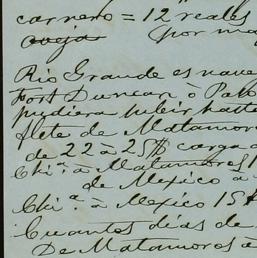 carnero = 12 reales
oveja por ma
Rio Grande es nave
Fort Duncan ò Pa
pudiera subir hatta
flete de Matamor
de 22 a 25$ carga
Chi.ª à Matamoros 1
de Mexico à
Chi.ª à Mexico 15$
Cuantos dias de
De Matamoros a